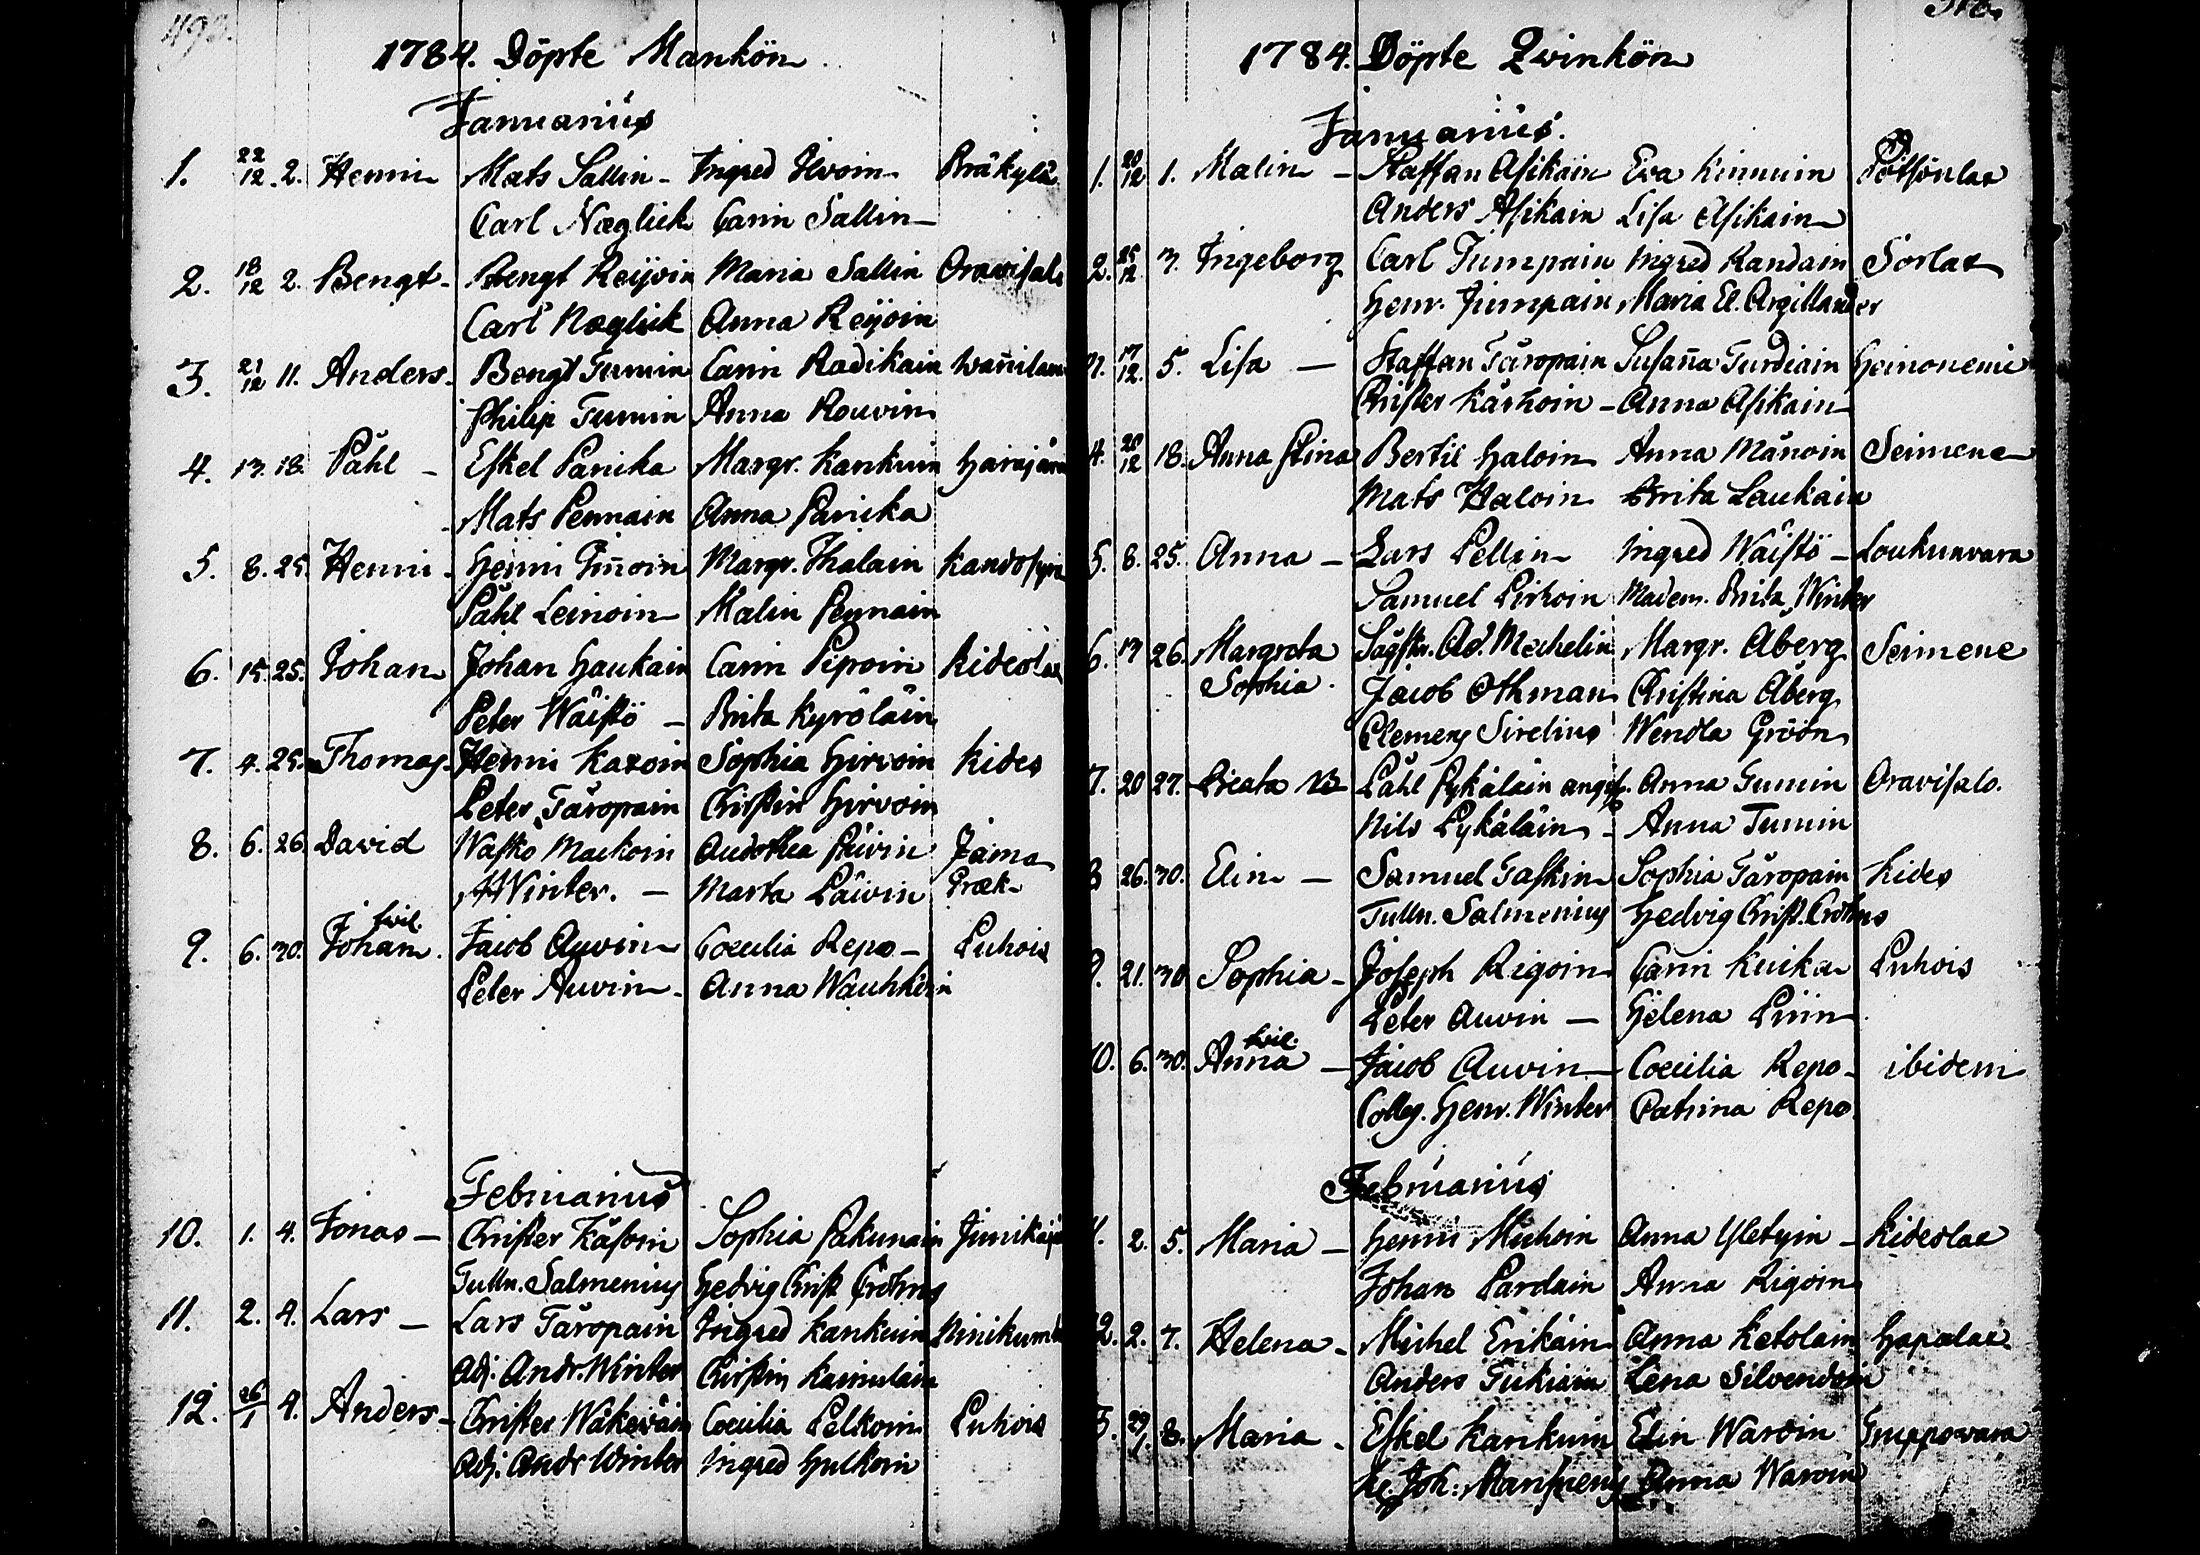 1784. Döpte Mankön
Januarius
1. 22/12. 2. Henrin Mats Sallin - Ingred Ilvoin Bräkylä
Carl Næglick Carin Sallin
2. 18/12 2. Bengt Bengt Reijoin Maria Sallin Oravisalo
Carl Næglick Anna Reijoin
3. 21/12 11. Anders Bengt Tumin Carin Radikain
Philip Tumin Anna Rouvin
4. 13. 18. Påhl - Eskel Parika Margr. Kankuin
Mats Pennain Anna Parika
5. 8. 25. Henri Henri Piñoin Margr. Thalain
Påhl Leinoin Malin Pennain
6. 15. 25. Johan Johan Haukain Carin Piipoin Kideslax
Peter Wäistö - Brita Kyröläin
7. 4. 25. Thomas Henri Kazoin Sophia Hirvoin Kides
Peter Täropain Chirstin Hirvoin
8. 6. 26. David Wasko Mackoin Audothea Päivin Jama
Winter. - Marta Päivin Græk.
9. 6. 30. Johan. tvil. Jacob Auvin Coecilia Repo - Puhois
Peter Auvin - Anna Wauhkoin
Februarius
10. 1. 4. Jonas - Christer Käsoin Sophia Pakunain
Tulln. Salmenius Hedvig Christ. Crohns
11. 2. 4. Lars - Lars Täropain Ingred Kankuin
Adj. Andr. Winter Chirstin Kainulain
12. 26/1 4. Anders - Christer Wäkeväin Coecilia Pelkoin Puhois
Adj. Andr Winter Ingred Hulkoin
1784. Döpte Qvinkön
Januarius.
1. 20/12 1. Malin - Staffan Asikain Eva Kinnuin Pötsönlax
Anders Asikain Lisa Asikain
2. 25/12 3. Ingeborg Carl Timpain Ingred Randain Sorlax
Henr. Timpain Maria El. Argillander
17/12. 5. Lisa - Staffan Täropain Susaña Turdiain Heinoniemi
Christer Kärhoin - Anna Asikain
4. 20/12 18. Anna Stina Bertil Haloin Anna Mänoin Seimene
Mats Haloin Brita Laukain
5. 8. 25. Anna - Lars Pellin Ingred Wäistö - Loukunvara
Samuel Pirhoin Madem. Brita Winter
6. 13 26. Margreta Sophia. Ad. Mechelin Margr. Åberg Seimene
Jacob Othman Christina Åberg
Clemens Sirelius Wendla Gröön
7. 20 27. Beata NB Påhl Pykäläin angif. Anna Tumin Oravisalo.
Nils Pykäläin - Anna Tumin
8 26. 30. Elin - Samuel Taskin Sophia Täropain Kides
Tulln. Salmenius Hedvig Christ. Crohns
9. 21. 30 Sophia - Joseph Rigoin Carin Kuika Puhois
Peter Auvin - Helena Piiin
10. 6. 30. Anna tvil. - Jacob Auvin Coecilia Repo - ibidem
Colleg. Henr. Winter Catrina Repo
Februarius
2. 5. Maria - Henri Muhoin Anna Yletyin - Kideslax
Johan Pardain Anna Rigoin
12. 2. 7. Helena - Michel Erikäin Anna Ketolain Hapalax
Anders Tukiain Lena Silvendoin
3. 29/1. 8. Maria - Eskel Kankuin Elin Waroin
Joh: Anna Waroin